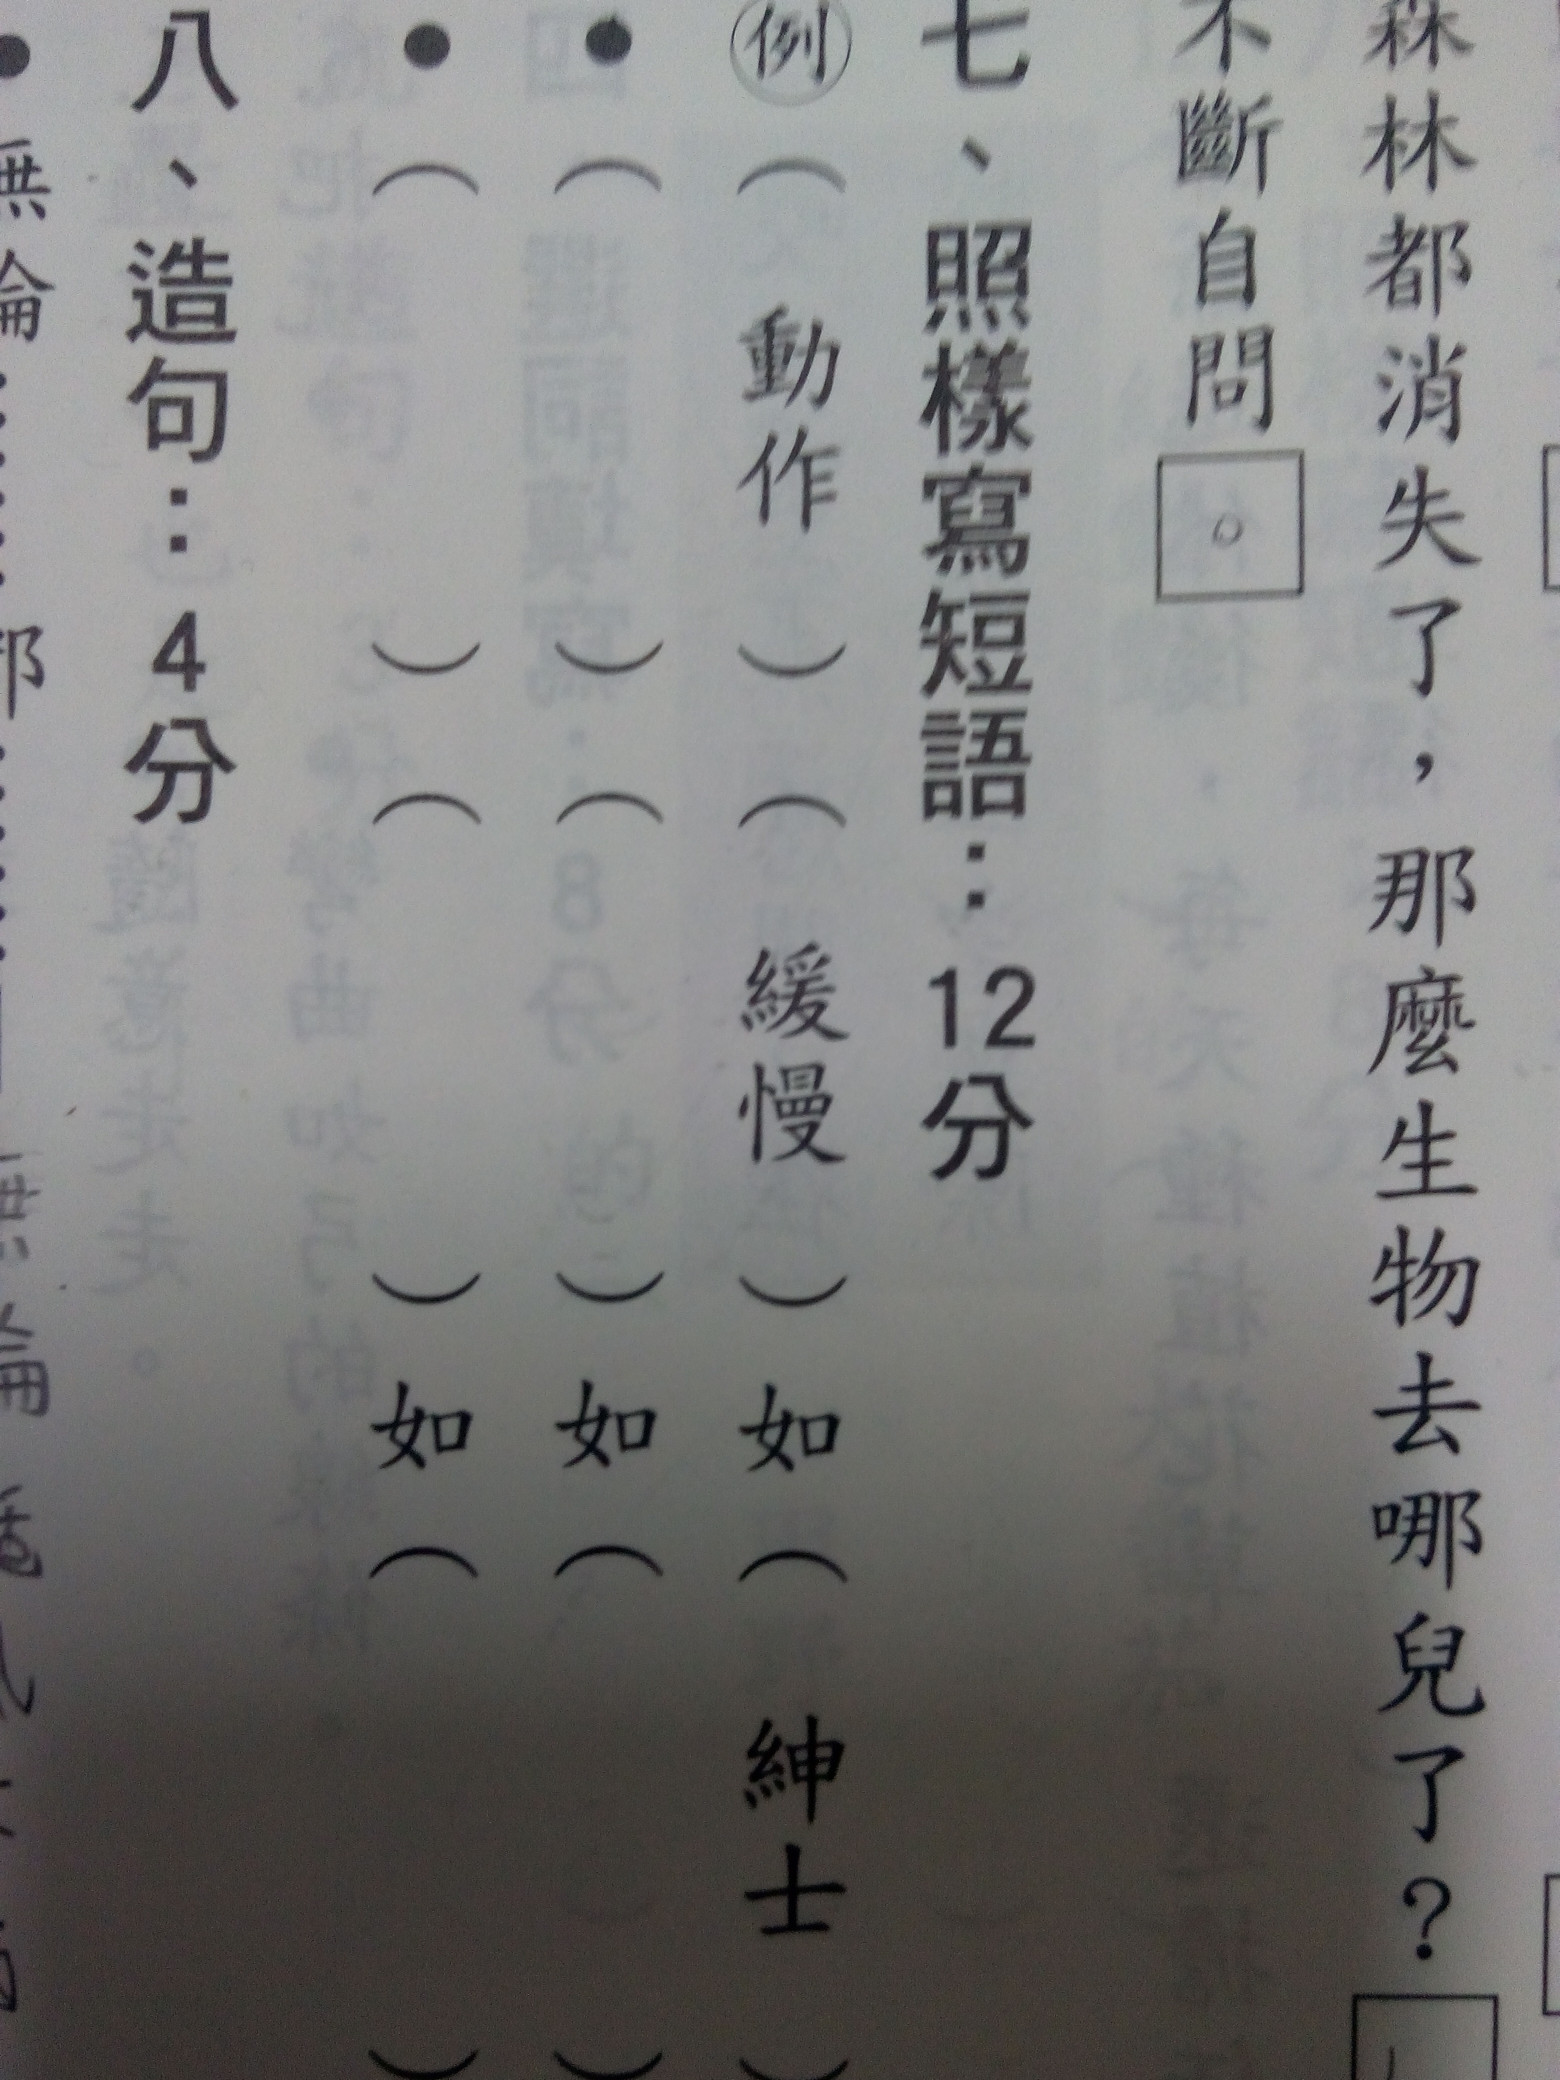 森林都消失了，那麼生物去哪兒了？
不斷自問。
七、照樣寫短語：12分
例（動作）（緩慢）如（紳士）
●（　）（　）如（　）
●（　）（　）如（　）
八、造句：4分
●無論……都……